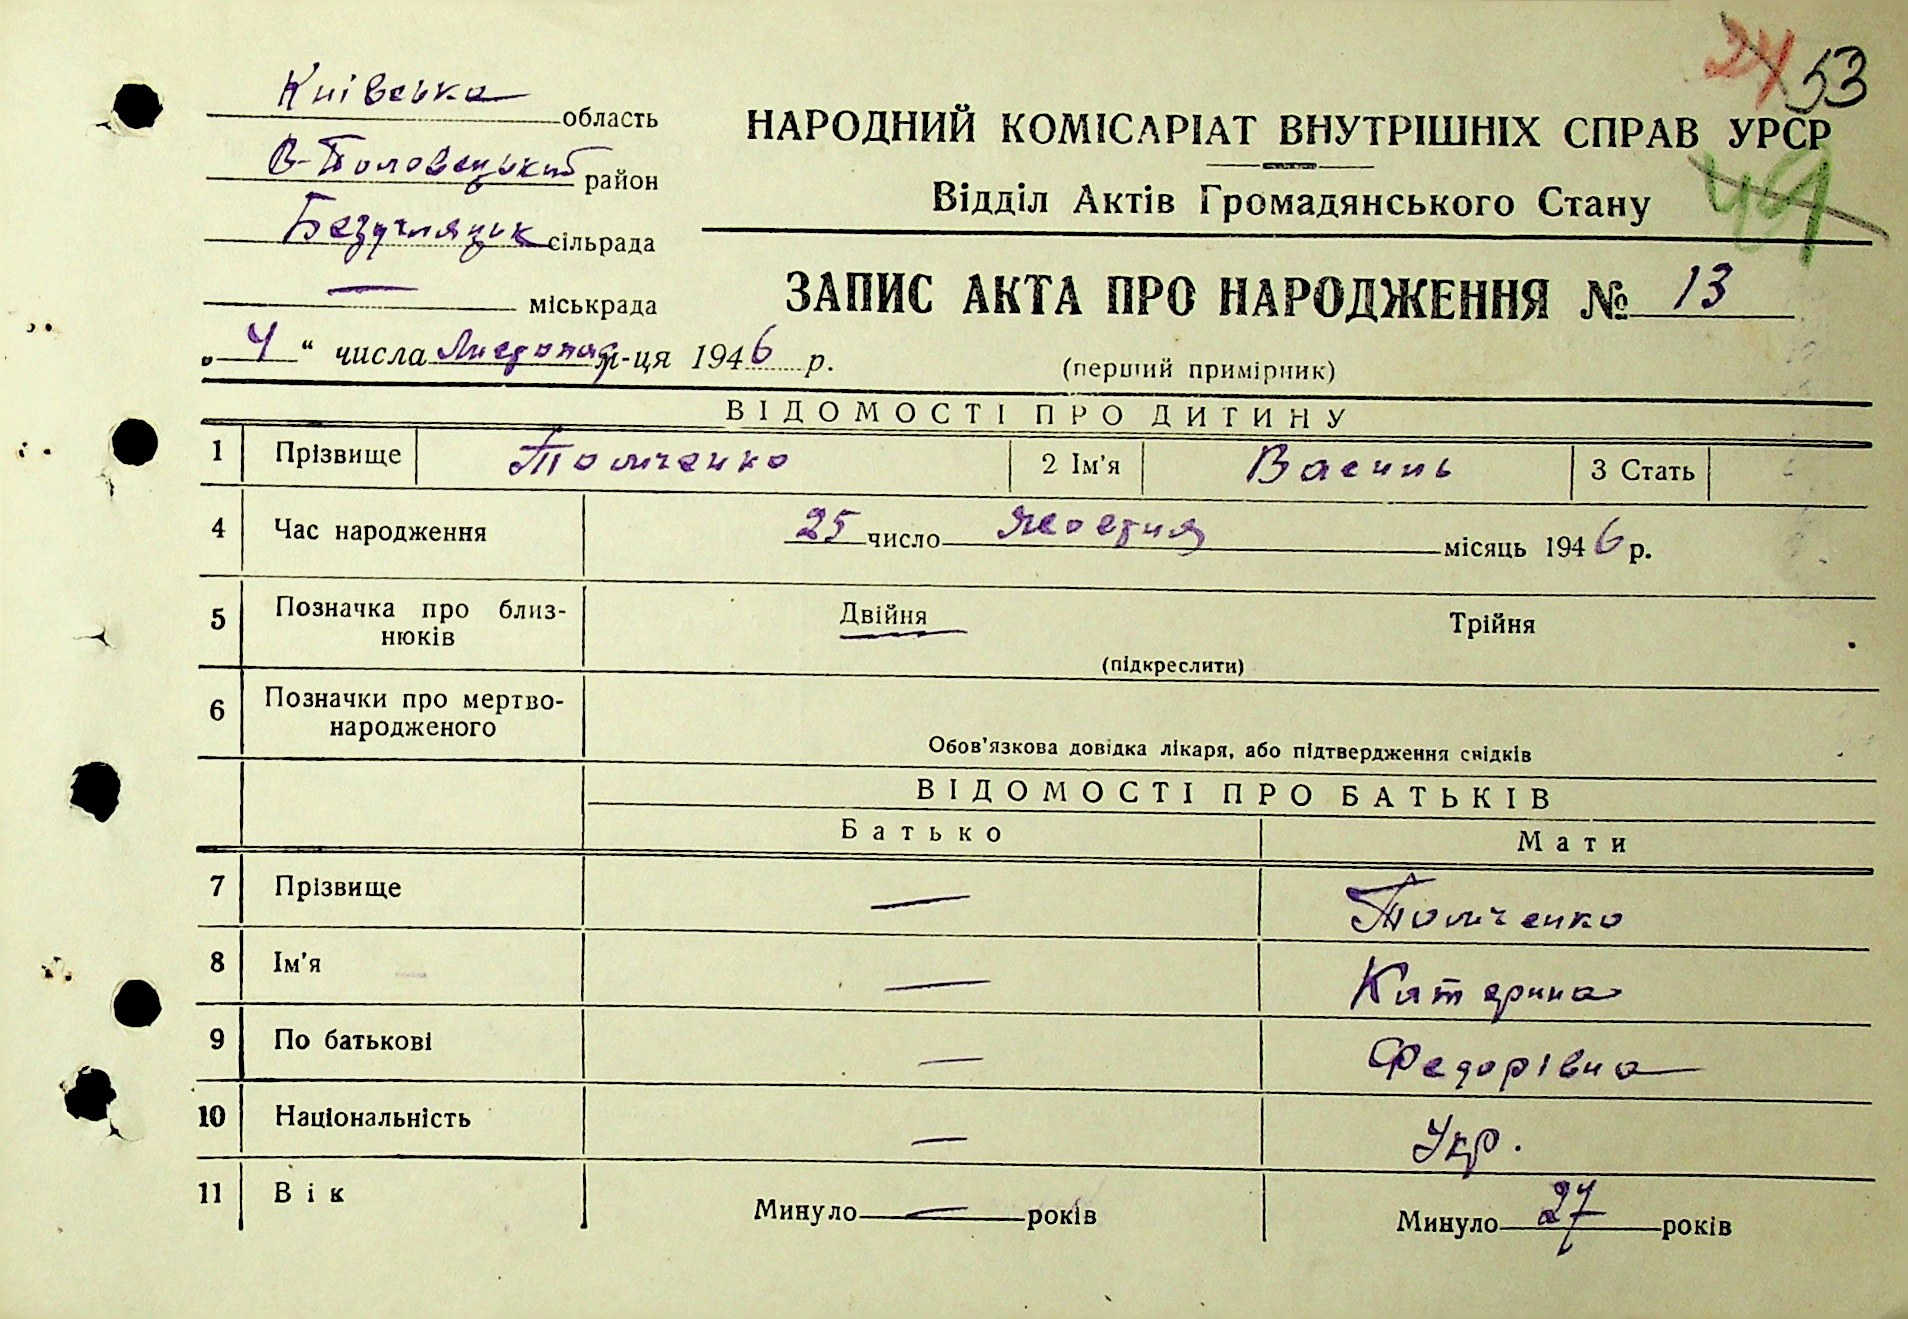 24 53
Київська область
НАРОДНИЙ КОМІСАРІАТ ВНУТРІШНІХ СПРАВ УРСР
В-Половецький район
49
Відділ Актів Громадянського Стану
сільрада
— міськрада
ЗАПИС АКТА ПРО НАРОДЖЕННЯ № 13
„4“ числа Листопад м-ця 1946 р.
(перший примірник)
ВІДОМОСТІ ПРО ДИТИНУ
1 Прізвище Толченко 2 Ім'я Василь 3 Стать
4 Час народження 25 число Жовтня місяць 1946 р.
5 Позначка про близ- Двійня Трійня
нюків
(підкреслити)
6 Позначки про мертво-
народженого
Обов'язкова довідка лікаря, або підтвердження свідків
ВІДОМОСТІ ПРО БАТЬКІВ
Батько Мати
7 Прізвище — Толченко
8 Ім'я — Катерина
9 По батькові — Федорівна
10 Національність — Укр.
11 Вік Минуло — років Минуло 27 років